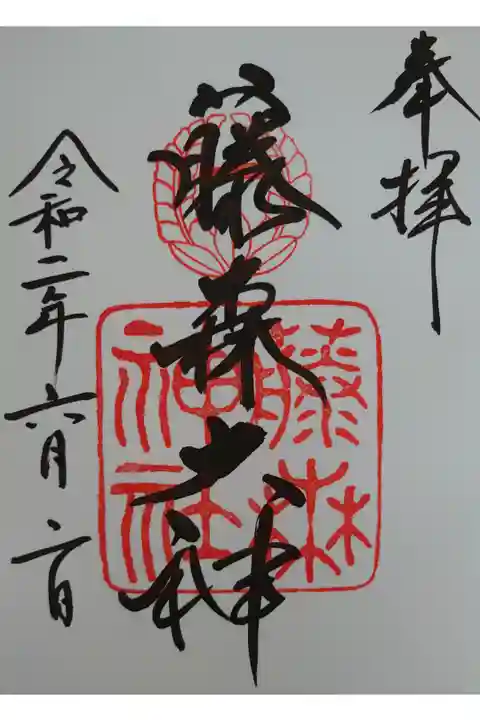 奉拝
藤森大神
令和二年六月二日
藤森
神社